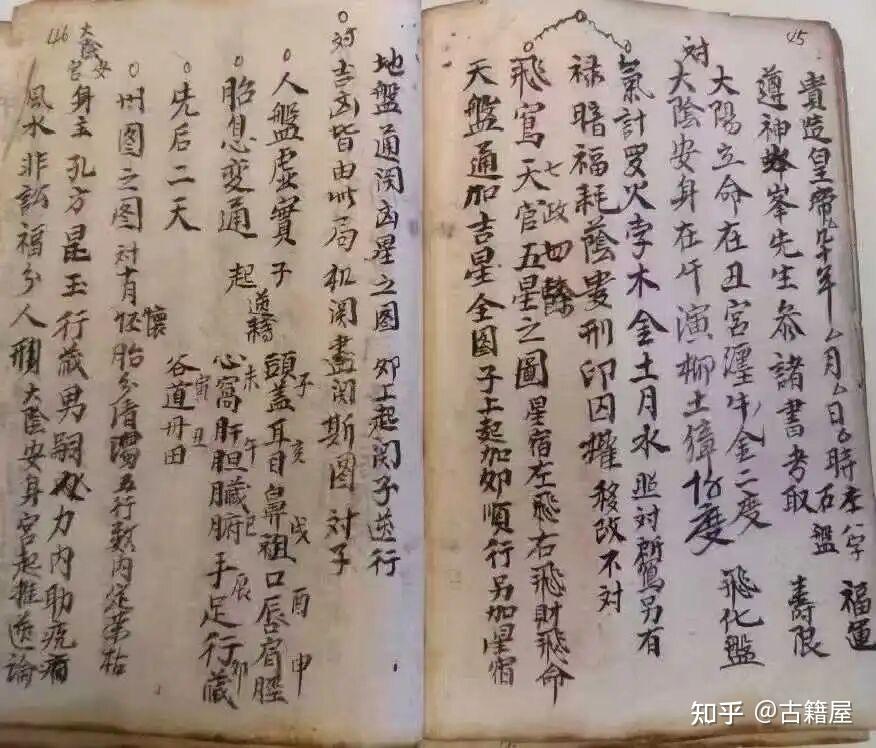 45
貴造皇帝九十年厶月厶日厶時在 福運
遵神峯先生叅諸書考取 石盤 壽限
太陽立命在丑宮躔牛金二度 飛化盤
対太陰安身在午 演柳土獐 度
氣計罗火孛木金土月水 对 另有
禄暗福耗蔭貴刑印囚權 移改不对
飛寫天官五星之圖 星宿左飛右飛財飛命
七政四餘
天盤通加吉星全图子上起加卯順行另加星宿
46
地盤通関凶星之图 卯上起関子逆行
対吉凶皆由此局机関盡関斯图 対子
人盤虚實 子 頭蓋耳目鼻祖口唇肩脛
子亥戌酉申
胎息变通 起 心窩肝胆臟腑手足行藏
未午巳辰卯
先后二天 谷道丹田
寅丑
州图之图 対 懷胎分清濁五行数内定荣枯
太陰安宮
身主孔方昆玉行藏男嗣 力内助疣病
風水非訟福分人 太陰安身宮起推逆論
知乎 @古籍屋